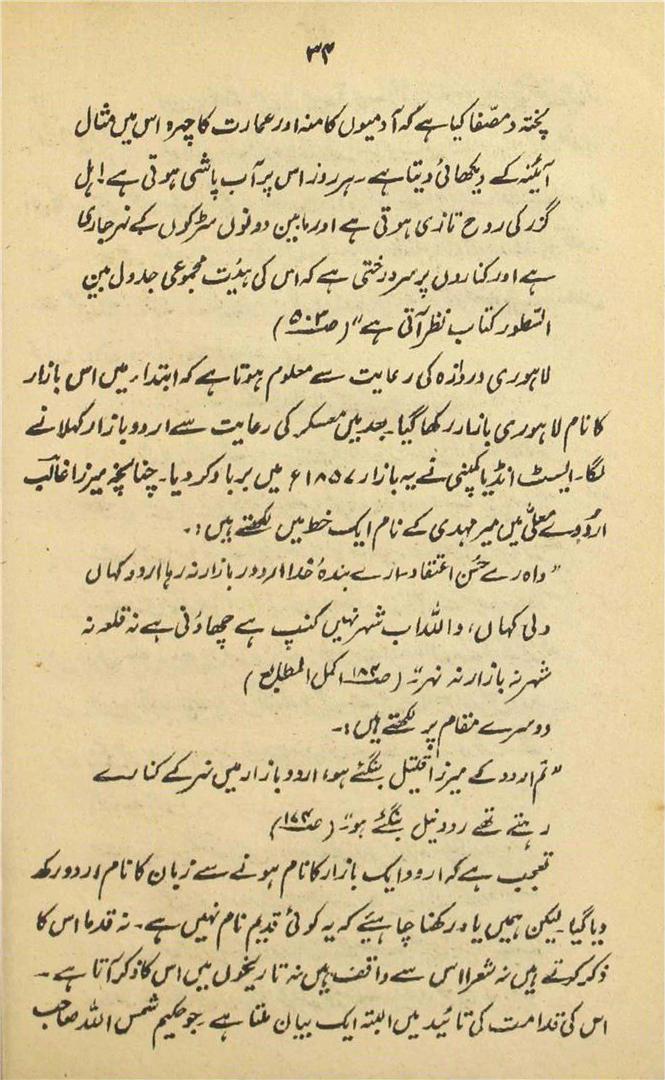 ۳۴
پختہ و مصفّا کیا ہے کہ آدمیوں کا منہ اور عمارت کا چہرہ اس میں مثال
آئینہ کے دیکھائی دیتا ہے۔ ہر روز اس پر آب پاشی ہوتی ہے اہل
گزر کی روح تازی ہوتی ہے اور مابین دونوں سڑکوں کے نہر جاری
ہے اور کناروں پر سرو رختی ہے کہ اس کی ہیئت مجموعی جدول بین
السّطور کتاب نظر آتی ہے" (صـ۵۰۳)
لاہوری دروازہ کی رعایت سے معلوم ہوتا ہے کہ ابتدا میں اس بازار
کا نام لاہوری بازار رکھا گیا۔ بعد میں معسکر کی رعایت سے اردو بازار کہلانے
لگا۔ ایسٹ انڈیا کمپنی نے یہ بازار ۱۸۵۷ء میں برباد کر دیا۔ چنانچہ میرزا غالب
اردوے معلّٰی میں میر مہدی کے نام ایک خط میں لکھتے ہیں:۔
"واہ رے حسن اعتقاد۔ ارے بندۂ خدا اردو بازار نہ رہا اردو کہاں
دلی کہاں، واللہ اب شہر نہیں کنپ ہے چھاؤنی ہے نہ قلعہ نہ
شہر نہ بازار نہ نہر" (صـ۱۸۳ اکمل المطابع)
دوسرے مقام پر لکھتے ہیں:۔
"تم اردو کے میرزا قتیل بنگئے ہو، اردو بازار میں نہر کے کنارے
رہتے تھے رود نیل بنگئے ہو۔" (صـ۱۷۴)
تعجب ہے کہ اردو ایک بازار کا نام ہونے سے زبان کا نام اردو رکھ
دیا گیا۔ لیکن ہمیں یاد رکھنا چاہیئے کہ یہ کوئی قدیم نام نہیں ہے۔ نہ قدما اس کا
ذکر کرتے ہیں نہ شعرا اس سے واقف ہیں نہ تاریخوں میں اس کا ذکر آتا ہے۔
اس کی قدامت کی تائید میں البتہ ایک بیان ملتا ہے۔ جو حکیم شمس اللہ صاحب